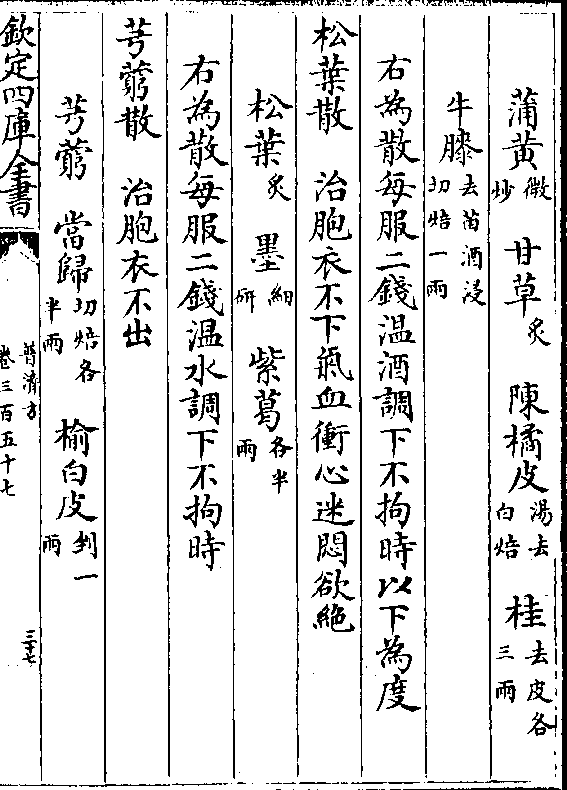 蒲黄微炒 甘草炙 陳橘皮湯去白焙 桂去皮各三兩
牛膝去苗酒浸切焙一兩
右為散每服二錢温酒調下不拘時以下為度
松葉散 治胞衣不下氣血衝心迷悶欲絶
松葉炙 墨細研 紫葛各半兩
右為散每服二錢温水調下不拘時
芎藭散 治胞衣不出
芎藭 當歸切焙各半兩 榆白皮剉一兩
欽定四庫全書 普濟方卷三百五十七 三十七